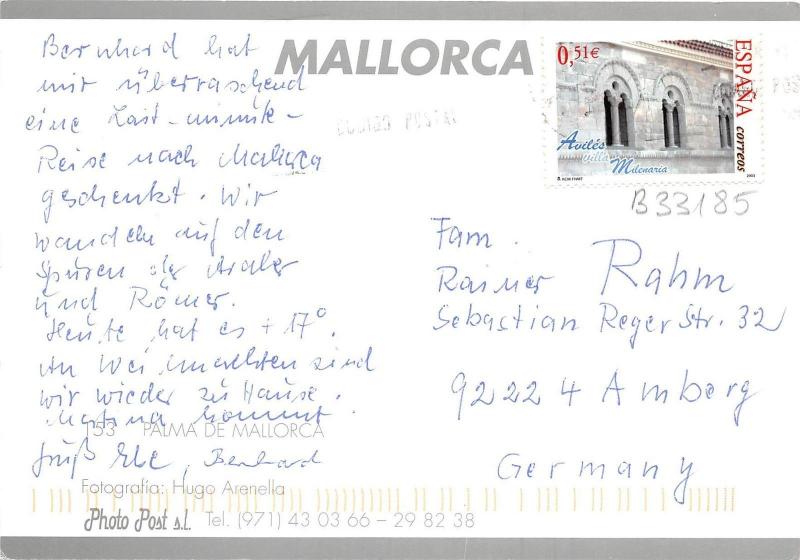 MALLORCA
Bernhard hat
mir überraschend
eine Last-minute-
Reise nach Mallorca
geschenkt. Wir
wandeln auf den
Spuren der Araber
und Römer.
Heute hat es +17°.
An Weihnachten sind
wir wieder zu Hause.
Martina kommt.
153 PALMA DE MALLORCA
Gruß Bernhard
Fotografía: Hugo Arenella
Photo Post s.l. Tel. (971) 43 03 66 – 29 82 38
0,51€
ESPAÑA
correos
Avilés
villa
Milenaria
2003
B33185
Fam.
Rainer Rahm
Sebastian Reger Str. 32
92224 Amberg
Germany